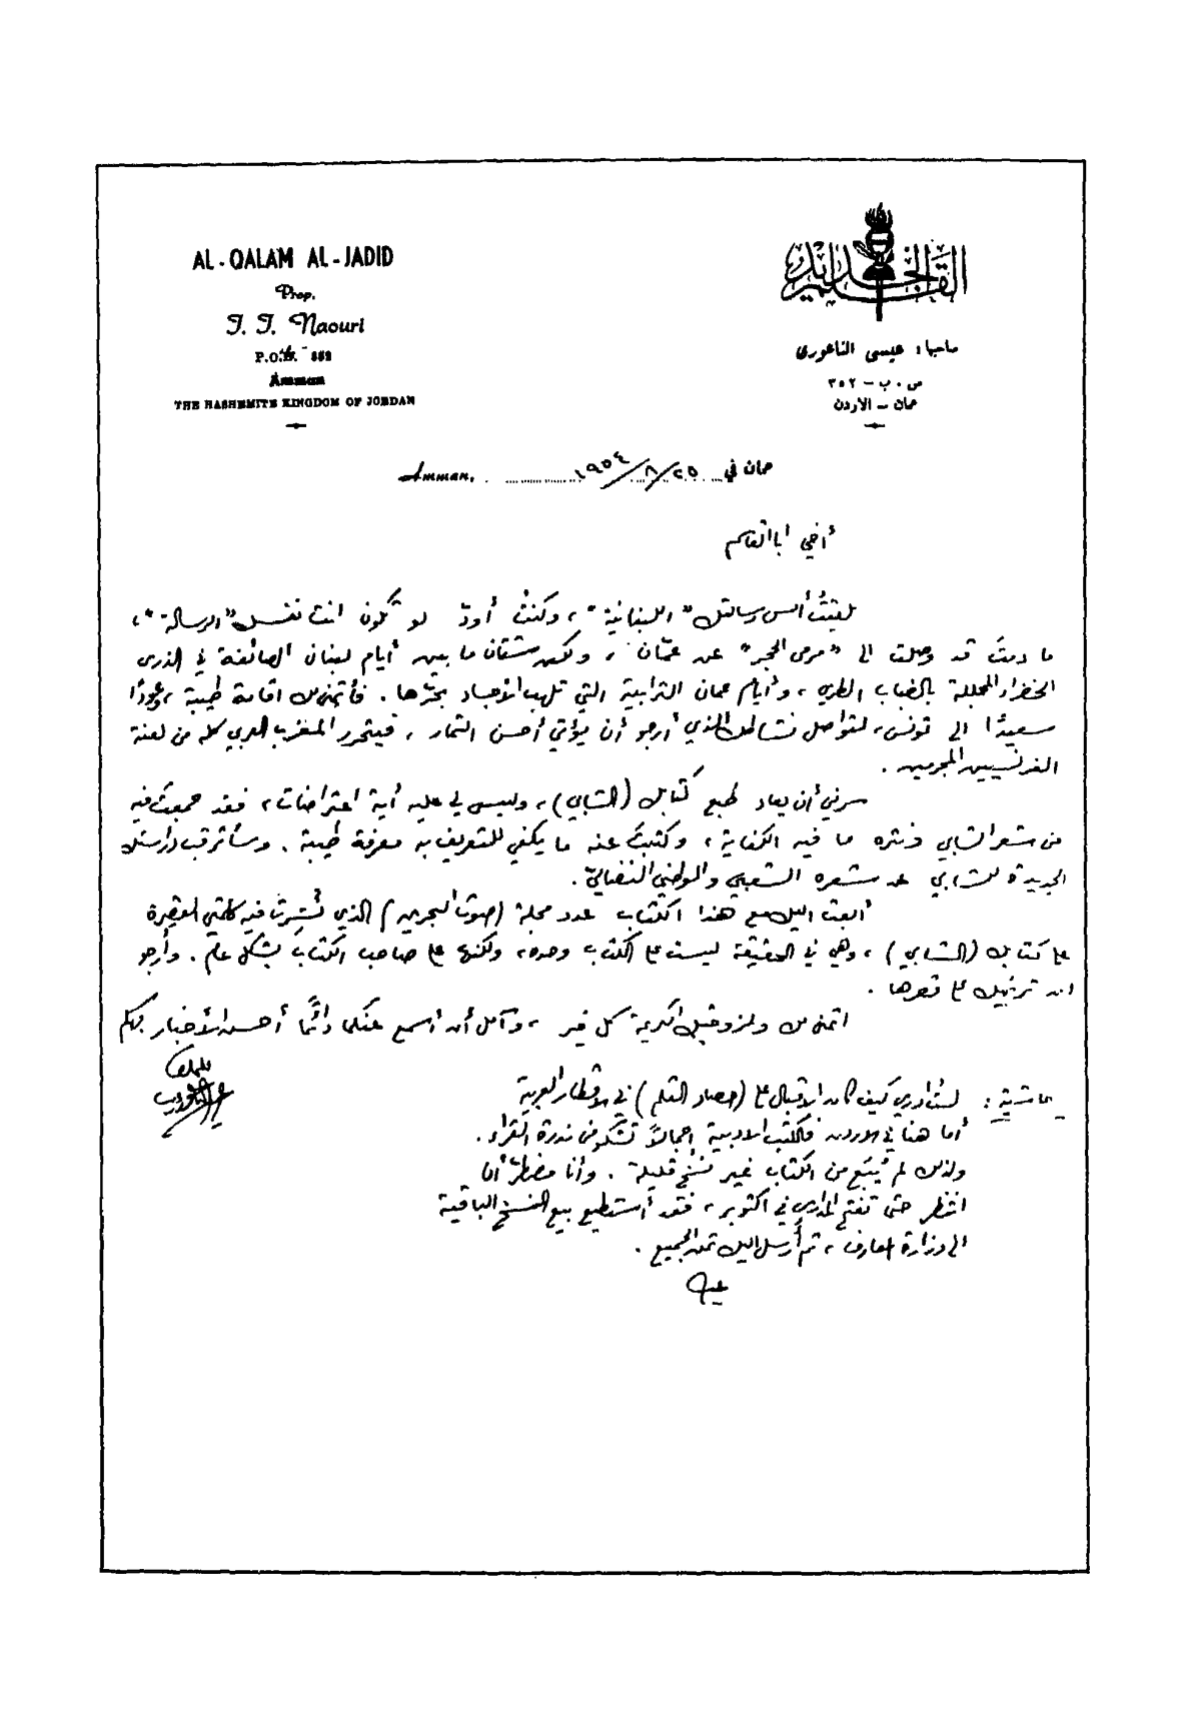 AL - QALAM AL - JADID
Prop.
I. I. Naouri
P.O.B. 352
Amman
THE HASHEMITE KINGDOM OF JORDAN
القلم الجديد
صاحبها: عيسى الناعوري
ص . ب – ٣٥٢
عمان – الاردن
Amman, عمان في ٢٥/٨/١٩٥٤
أخي ابا القاسم
تلقيتُ أمس رسالتك "اللبنانية"، وكنتُ أودّ لو تكون انت نفسك "الرسالة"،
ما دمتَ قد وصلت الى "مرمى الحجر" عن عمّان، ولكن شتّان ما بين أيام لبنان الصائفة في الذرى
الخضراء المجللة بالضباب الطري، وأيام عمان الترابية التي تلهب الأجساد بحرّها. فأتمنى لك اقامة طيبة، وعودًا
سعيدًا الى تونس، لتواصل نشاطك الذي أرجو أن يؤتي أحسن الثمار، فيتحرر المغرب العربي كله من لعنة
الفرنسيين المجرمين.
سرني أن يعاد طبع كتابك (الشابي)، وليس لي عليه أية اعتراضات، فقد جمعتَ فيه
من شعر الشابي ونثره ما فيه الكفاية، وكتبتَ عنه ما يكفي للتعريف به معرفة طيبة. وسأترقب دراستك
الجديدة للشابي عن شعره الشعبي والوطني النضالي.
أبعث اليك مع هذا الكتاب عدد مجلة (صوت البحرين) الذي نُشِرتْ فيه كلمتي القصيرة
على كتابك (الشابي)، وهي في الحقيقة ليست على الكتاب وحده، ولكنها على صاحب الكتاب بشكل عام. وأرجو
ان ترضيك على قصرها.
اتمنى لك ولزوجتك الكريمة كل خير، وآمل أن أسمع عنكما دائمًا أحسن الأخبار
للمخلص
عيسى الناعوري
حاشية: لستُ ادري كيف كان الاقبال على (حصاد القلم) في الاقطار العربية
أما هنا في الاردن فالكتب الادبية إجمالاً تشكو من ندرة القراء.
ولذلك لم يُبَع من الكتاب غير نسخ قليلة. وأنا مضطر أن
انتظر حتى تفتح المدارس في اكتوبر، فقد أستطيع بيع النسخ الباقية
الى وزارة المعارف، ثم أرسل اليك ثمن الجميع.
عيسى